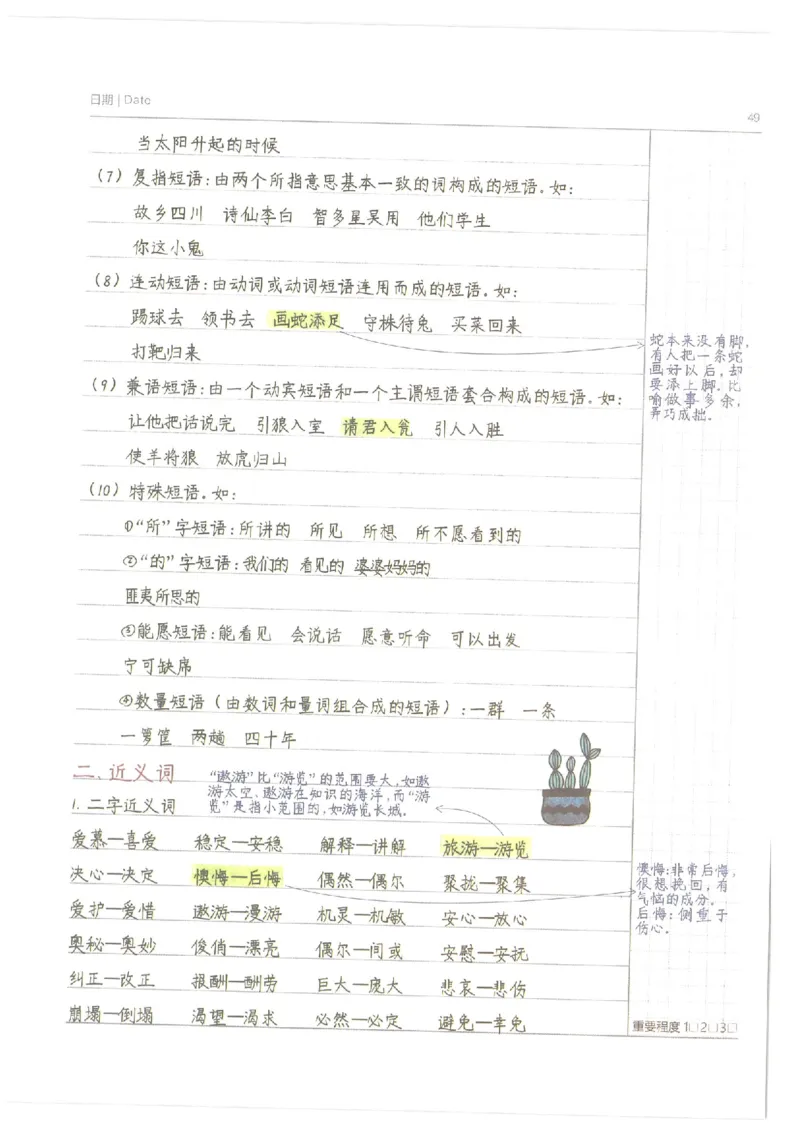 日期 | Date
49
当太阳升起的时候
(7) 复指短语:由两个所指意思基本一致的词构成的短语。如:
故乡四川 诗仙李白 智多星吴用 他们学生
你这小鬼
(8) 连动短语:由动词或动词短语连用而成的短语。如:
踢球去 领书去 画蛇添足 守株待兔 买菜回来
打靶归来
蛇本来没有脚,
有人把一条蛇
画好以后,却
要添上脚。比
喻做事多余,
弄巧成拙。
(9) 兼语短语:由一个动宾短语和一个主谓短语套合构成的短语。如:
让他把话说完 引狼入室 请君入瓮 引人入胜
使羊将狼 放虎归山
(10) 特殊短语。如:
①“所”字短语:所讲的 所见 所想 所不愿看到的
②“的”字短语:我们的 看见的 婆婆妈妈的
匪夷所思的
③能愿短语:能看见 会说话 愿意听命 可以出发
宁可缺席
④数量短语(由数词和量词组合成的短语):一群 一条
一箩筐 两趟 四十年
二、近义词
“遨游”比“游览”的范围要大,如遨
游太空、遨游在知识的海洋,而“游
览”是指小范围的,如游览长城。
1. 二字近义词
爱慕—喜爱 稳定—安稳 解释—讲解 旅游—游览
决心—决定 懊悔—后悔 偶然—偶尔 聚拢—聚集
爱护—爱惜 遨游—漫游 机灵—机敏 安心—放心
奥秘—奥妙 俊俏—漂亮 偶尔—间或 安慰—安抚
纠正—改正 报酬—酬劳 巨大—庞大 悲哀—悲伤
崩塌—倒塌 渴望—渴求 必然—必定 避免—幸免
懊悔:非常后悔,
很想挽回,有
气恼的成分。
后悔:侧重于
伤心。
重要程度 1□2□3□